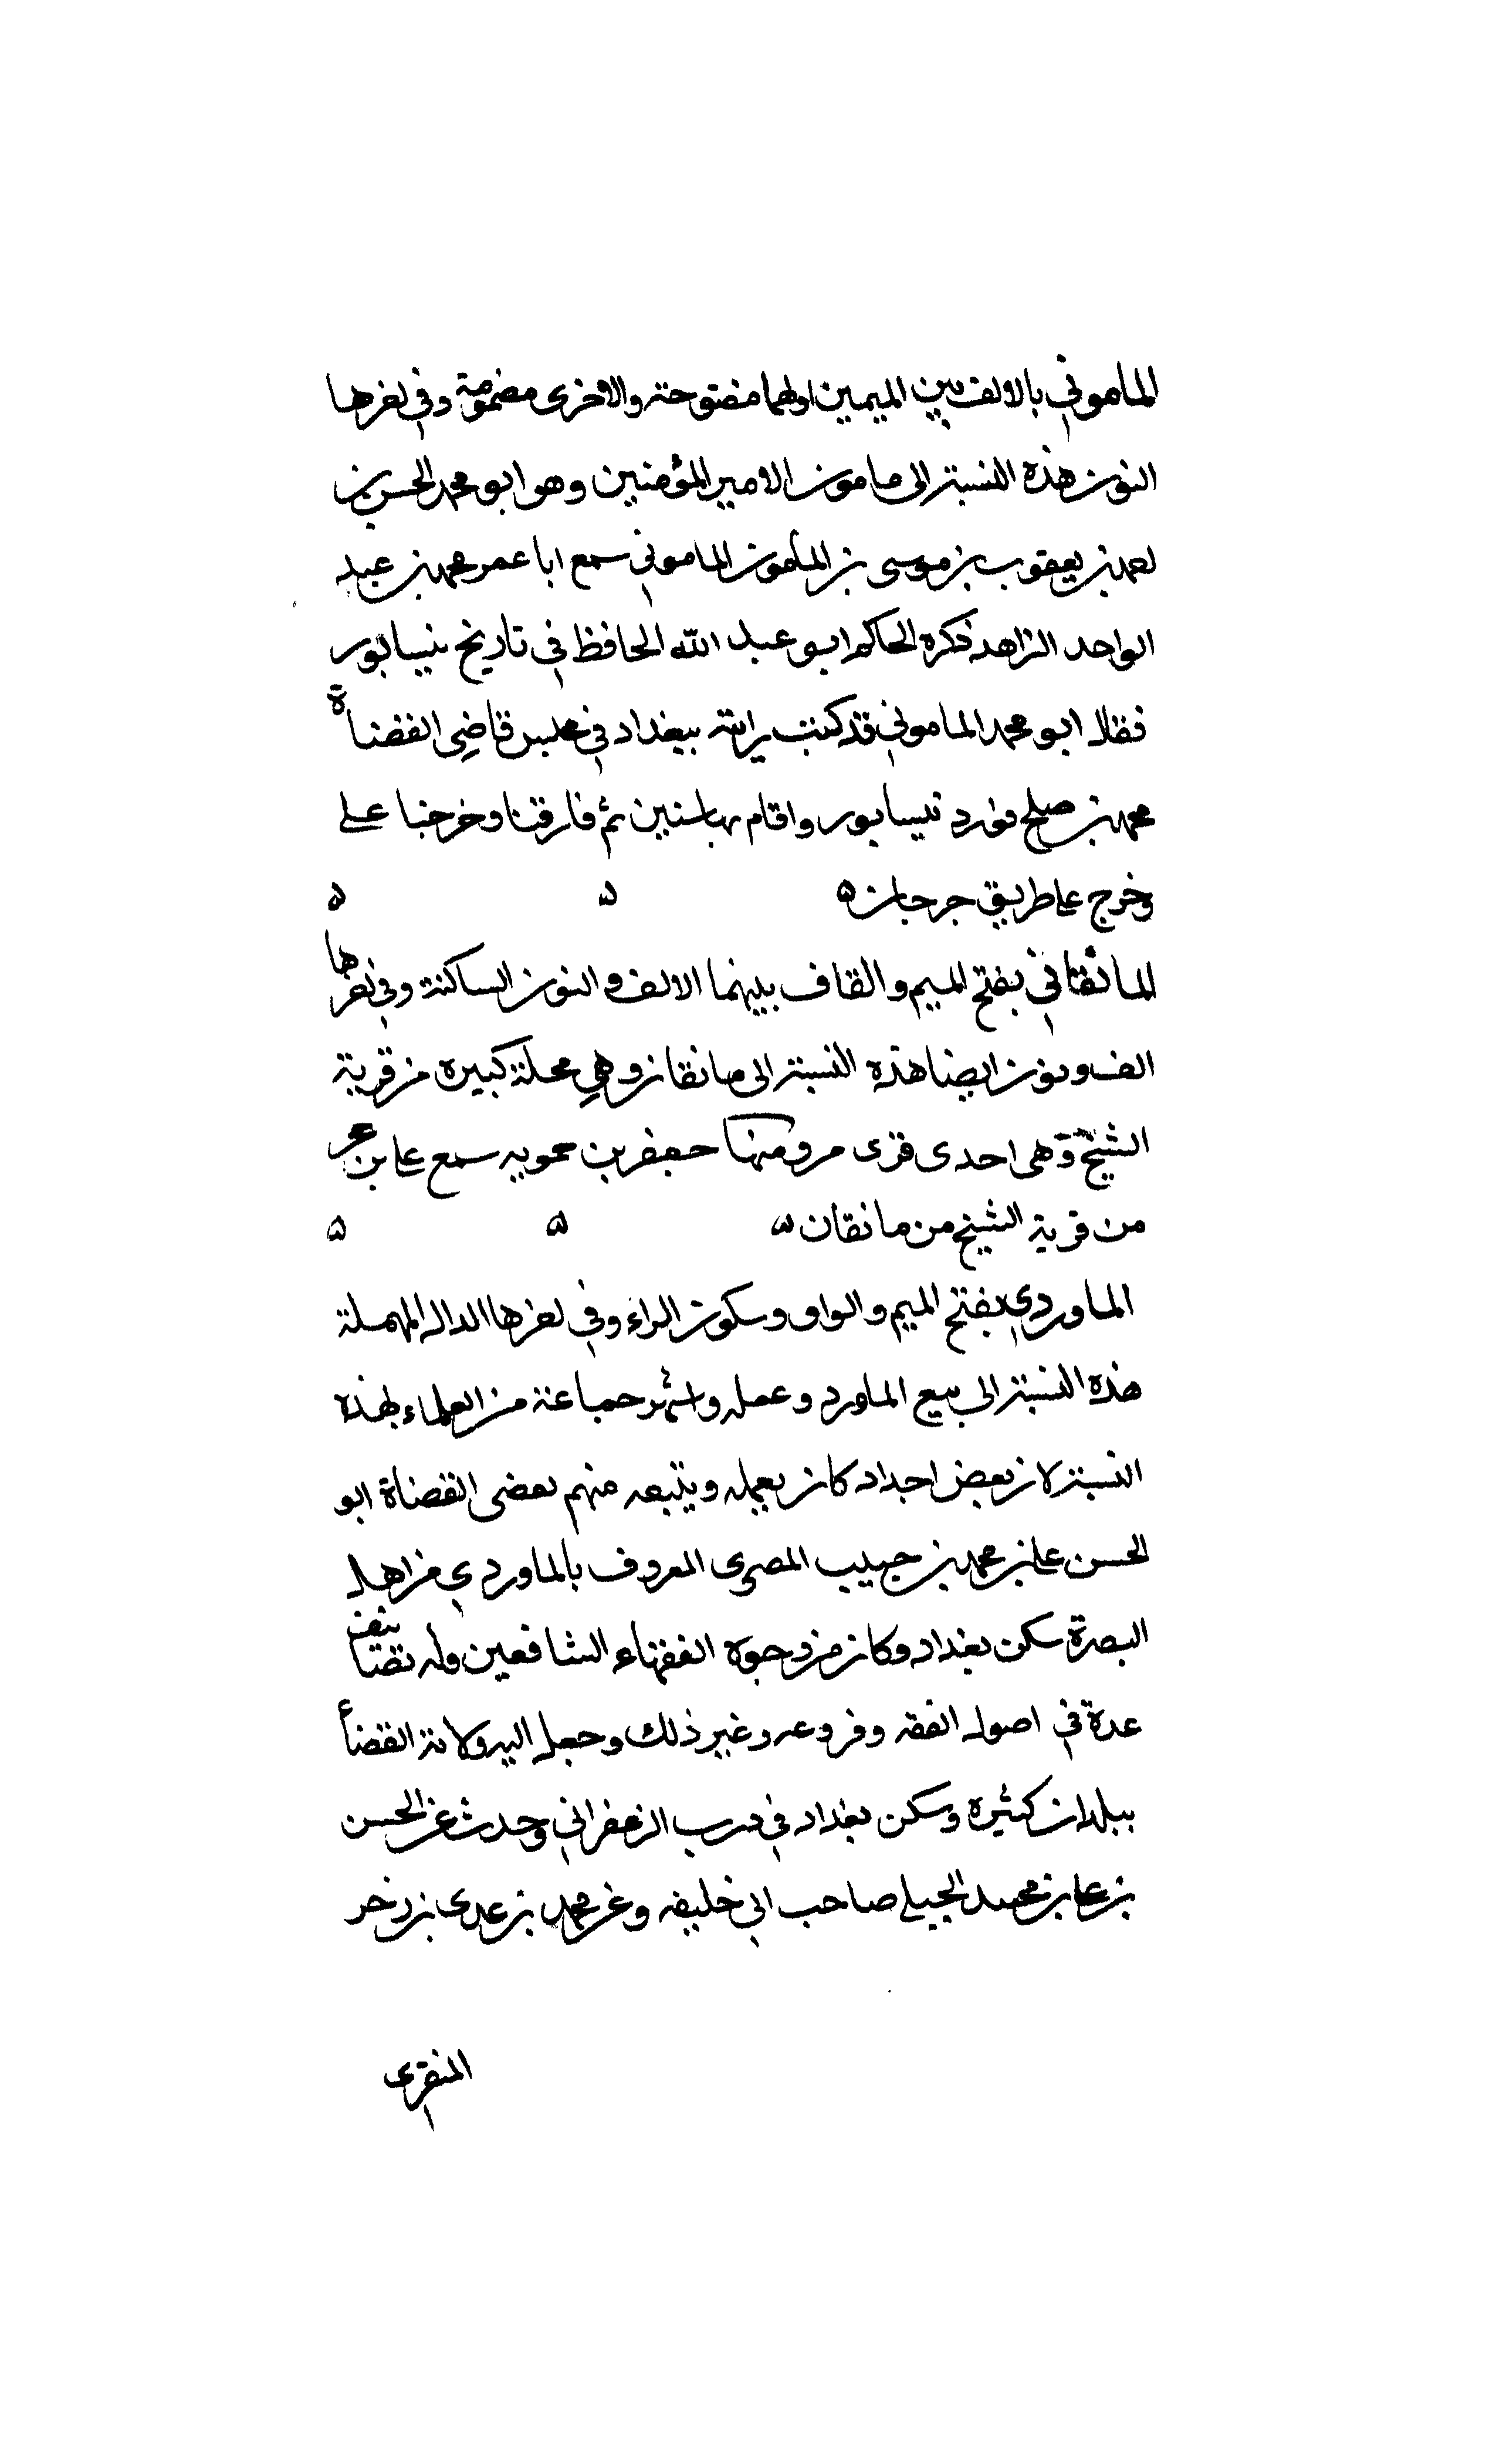 الماموني بالالف بين الميمين اولهما مفتوحة والاخرى مضمومة وفي اخرها
النون هذه النسبة الى مامون الامير المؤمنين وهو ابو محمد الحسن بن
احمد بن يعقوب بن موسى بن المأمون الماموني سمع ابا عمر محمد بن عبد
الواحد الزاهد ذكره الحاكم ابو عبد الله الحافظ في تاريخ نيسابور
فقال ابو محمد الماموني قد كنت رايته ببغداد في مجلس قاضي القضاة
محمد بن صلح فورد نيسابور واقام بها سنين ثم فارقنا وخرجنا على
وخرج على طريق جرجان ه ه ه
المانقاني بفتح الميم والقاف بينهما الالف و النون الساكنة وفي اخرها
الف ونون ايضا هذه النسبة الى مانقان وهي محلة كبيرة من قرية
الشيخ وهى احدى قرى مرو منها جعفر بن محويه سمع على بن حجر
من قرية الشيخ من مانقان ه ه ه
الماوردي بفتح الميم والواو وسكون الراء وفي اخرها الدال المهملة
هذه النسبة الى بيع الماورد وعمله واشتهر جماعة من العلماء بهذه
النسبة لان بعض اجداد كان يعمله ويتبعه منهم بعضى القضاة ابو
الحسن على بن محمد بن حبيب المصرى المعروف بالماوردي من اهل
البصرة سكن بغداد وكان من وجوه الفقهاء الشافعين وله تصانيف
عدة في اصول الفقه وفروعه وغير ذلك وجعل اليه ولاية القضأ
ببلدان كثيرة وسكن بغداد في درب الزعفراني وحدث عن الحسن
بن على بن محمد الجيلي صاحب ابي خليفه وعن محمد بن عدى بن زخر
المنقرى